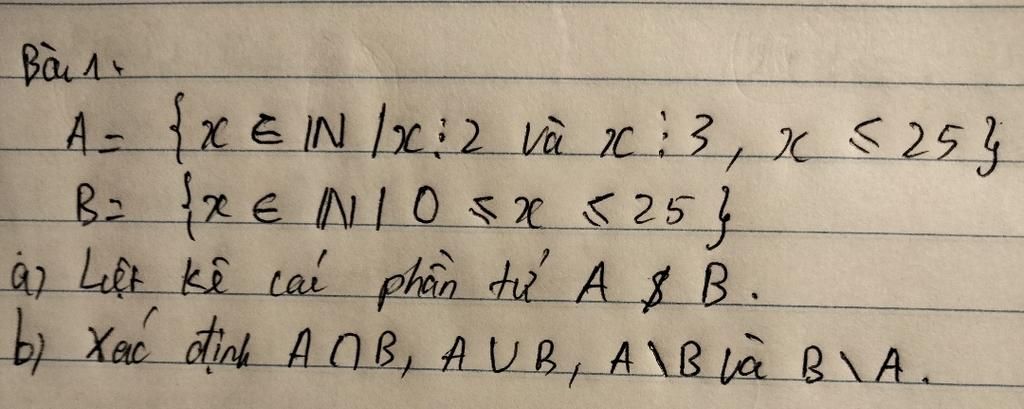 Bài 1.
A = {x ∈ ℕ / x ⋮ 2 và x ⋮ 3, x ≤ 25}
B = {x ∈ ℕ / 0 ≤ x ≤ 25}
a) Liệt kê các phần tử A & B.
b) Xác định A ∩ B, A ∪ B, A \ B và B \ A.